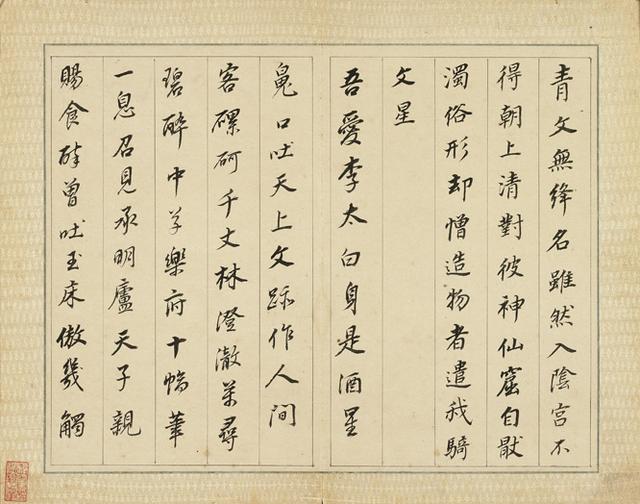 青文無絳名雖然入陰宮不
得朝上清對彼神仙窟自厭
濁俗形却憎造物者遣我騎
文星
吾愛李太白身是酒星
魄口吐天上文跡作人間
客磥砢千丈林澄澈萬尋
碧醉中草樂府十幅筆
一息召見承明廬天子親
賜食醉曾吐玉床傲幾觸